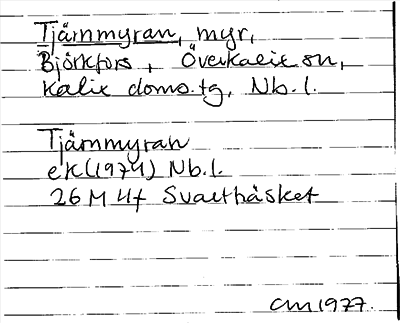 Tjärnmyran, myr,
Björkfors, Överkalix sn,
Kalix doms.tg, Nb.l.
Tjärnmyran
ek(1974) Nb.l.
26 M 4f Svartbäsket
CM 1977.